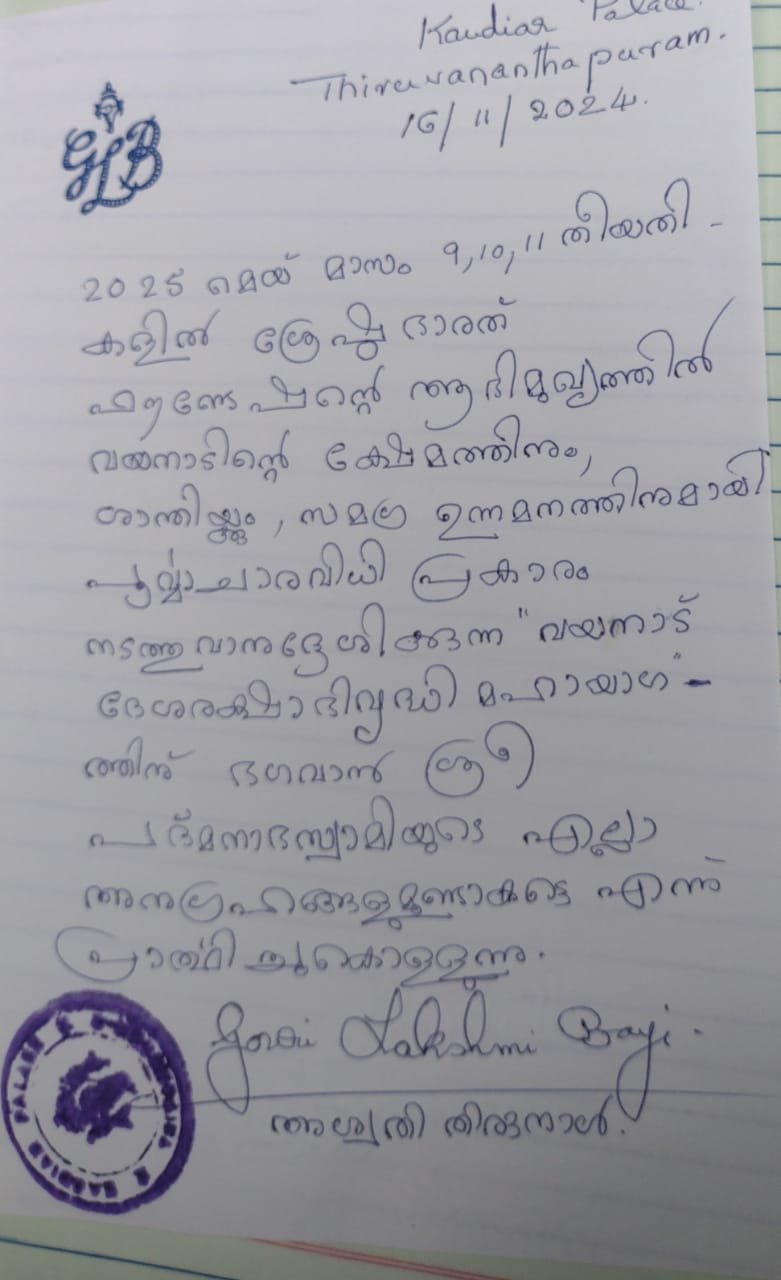 Kaudiar Palace.
Thiruvananthapuram.
16/11/2024.
GLB
2025 മെയ് മാസം 9,10,11 തീയതി -
കളിൽ ശ്രേഷ്ഠ ഭാരത്
ഫൗണ്ടേഷന്റെ ആഭിമുഖ്യത്തിൽ
വയനാടിന്റെ ക്ഷേമത്തിനും,
ശാന്തിയ്ക്കും, സമഗ്ര ഉന്നമനത്തിനുമായി
പൂർവ്വാചാരവിധി പ്രകാരം
നടത്തുവാനുദ്ദേശിക്കുന്ന "വയനാട്
ദേശരക്ഷാഭിവൃദ്ധി മഹായാഗ" -
ത്തിന് ഭഗവാൻ ശ്രീ
പദ്മനാഭസ്വാമിയുടെ എല്ലാ
അനുഗ്രഹങ്ങളുമുണ്ടാകട്ടെ എന്ന്
പ്രാർത്ഥിച്ചുകൊള്ളുന്നു.
Gouri Lakshmi Bayi.
അശ്വതി തിരുനാൾ.
PALACE
KAUDIAR